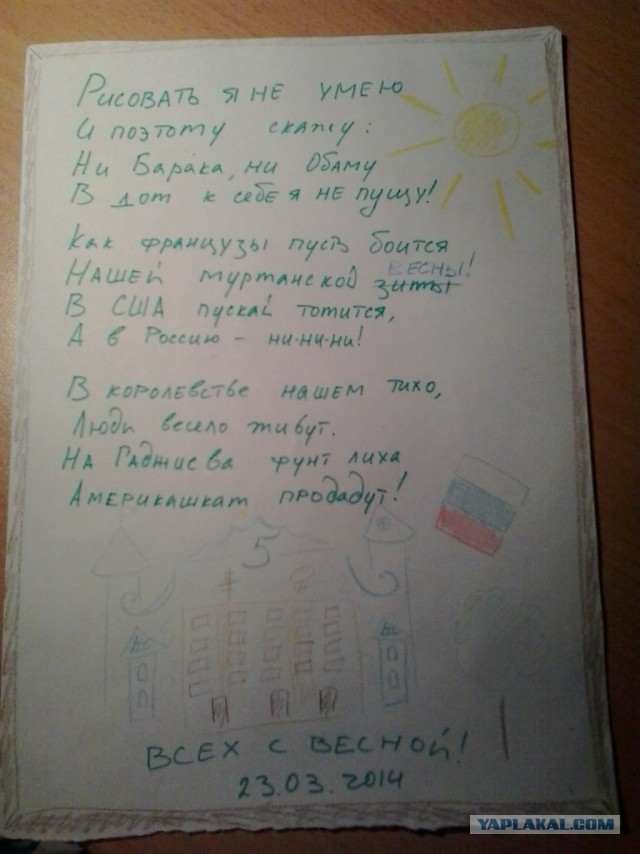 Рисовать я не умею
И поэтому скажу:
Ни Барака, ни Обаму
В дом к себе я не пущу!
Как французы пусть боится
Нашей мурманской зимы ВЕСНЫ!
В США пускай томится,
А в Россию - ни-ни-ни!
В королевстве нашем тихо,
Люди весело живут.
На Гаджиева фунт лиха
Америкашкам продадут!
5
ВСЕХ С ВЕСНОЙ!
23.03.2014
YAPLAKAL.COM